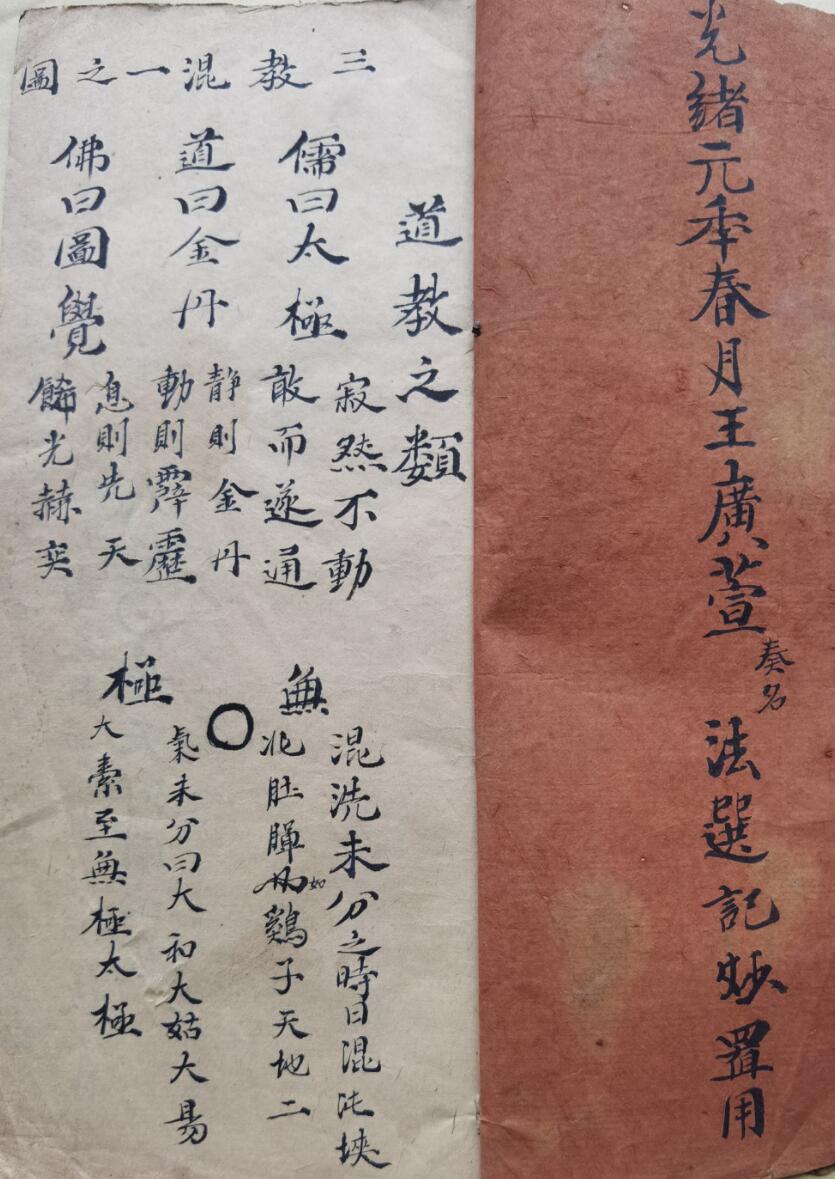 光緒元年春月王廣萱奏名法選記妙置用
道教之類
三教混一之圖
儒曰太極
寂然不動
敢而遂通
道曰金丹
静則金丹
動則霹靂
佛曰圖覺
息則先天
餙光赫奕
無
混洗未分之時曰混沌
兆胚腪如鷄子天地二
〇
氣未分曰大和大姑大易
極
大素至無極太極